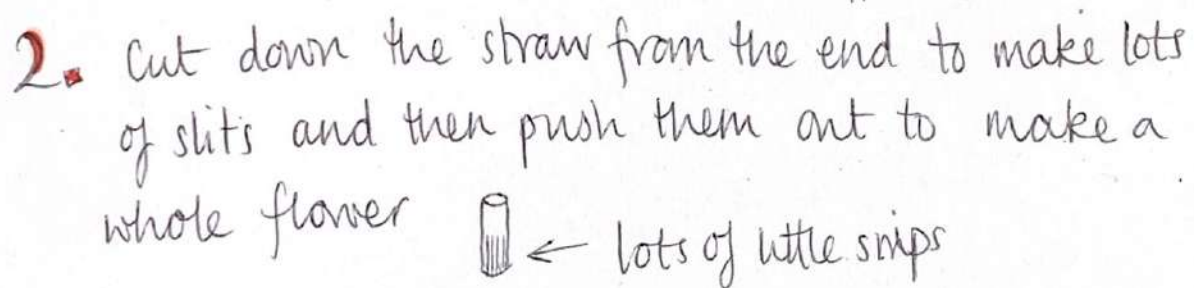 2. Cut down the straw from the end to make lots
of slits and then push them out to make a
whole flower ← lots of little snips